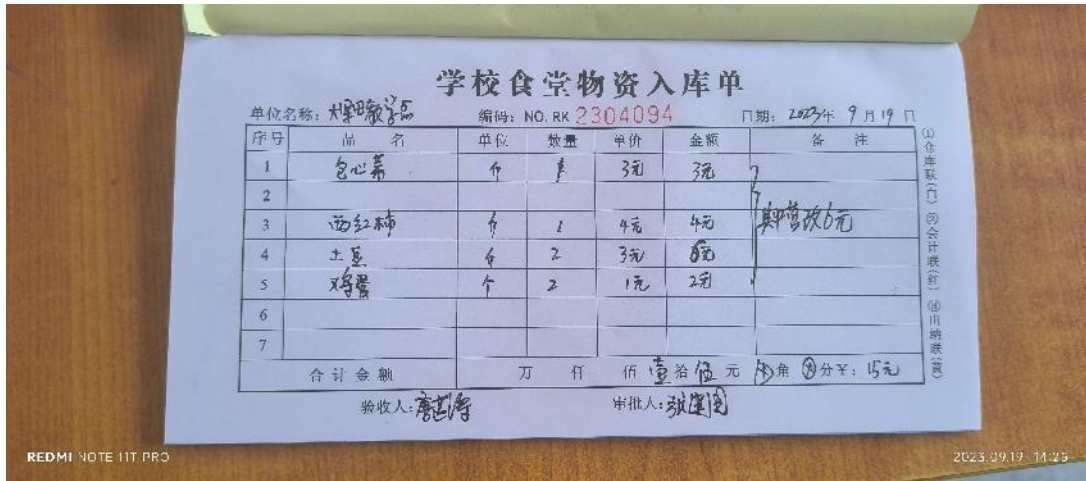 学校食堂物资入库单
单位名称： 教学点 编码：NO. RK 2304094 日期：2023年 9月19日
序号 品名 单位 数量 单价 金额 备注
1 包心菜 斤 1 3元 3元
2
3 西红柿 斤 1 4元 4元
4 土豆 斤 2 3元 6元
5 鸡蛋 个 2 1元 2元
其中营改6元
6
7
合计金额 万 仟 佰 壹拾伍元 角 分 ￥：15元
验收人： 审批人：
(1)仓库联(白) (2)会计联(红) (3)出纳联(黄)
REDMI NOTE 11T PRO
2023.09.19 14:25